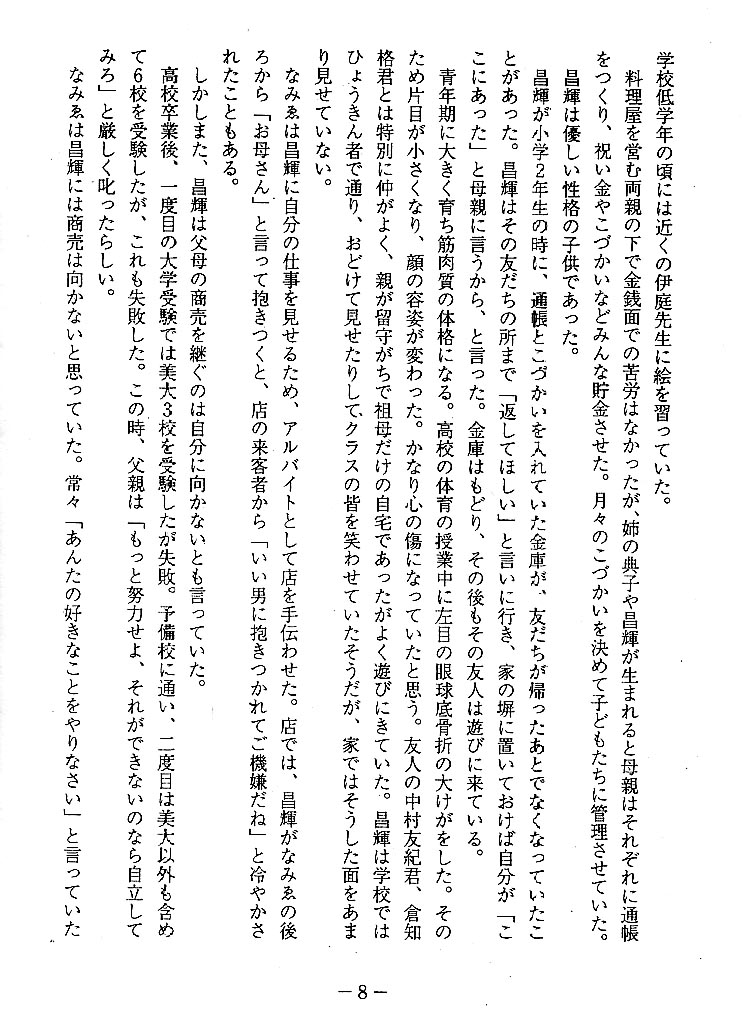 学校低学年の頃には近くの伊庭先生に絵を習っていた。
料理屋を営む両親の下で金銭面での苦労はなかったが、姉の典子や昌輝が生まれると母親はそれぞれに通帳
をつくり、祝い金やこづかいなどみんな貯金させた。月々のこづかいを決めて子どもたちに管理させていた。
昌輝は優しい性格の子供であった。
昌輝が小学2年生の時に、通帳とこづかいを入れていた金庫が、友だちが帰ったあとでなくなっていたこ
とがあった。昌輝はその友だちの所まで「返してほしい」と言いに行き、家の塀に置いておけば自分が「こ
こにあった」と母親に言うから、と言った。金庫はもどり、その後もその友人は遊びに来ている。
青年期に大きく育ち筋肉質の体格になる。高校の体育の授業中に左目の眼球底骨折の大けがをした。その
ため片目が小さくなり、顔の容姿が変わった。かなり心の傷になっていたと思う。友人の中村友紀君、倉知
格君とは特別に仲がよく、親が留守がちで祖母だけの自宅であったがよく遊びにきていた。昌輝は学校では
ひょうきん者で通り、おどけて見せたりしてクラスの皆を笑わせていたそうだが、家ではそうした面をあま
り見せていない。
なみゑは昌輝に自分の仕事を見せるため、アルバイトとして店を手伝わせた。店では、昌輝がなみゑの後
ろから「お母さん」と言って抱きつくと、店の来客者から「いい男に抱きつかれてご機嫌だね」と冷やかさ
れたこともある。
しかしまた、昌輝は父母の商売を継ぐのは自分に向かないとも言っていた。
高校卒業後、一度目の大学受験では美大3校を受験したが失敗。予備校に通い、二度目は美大以外も含め
て6校を受験したが、これも失敗した。この時、父親は「もっと努力せよ、それができないのなら自立して
みろ」と厳しく叱ったらしい。
なみゑは昌輝には商売は向かないと思っていた。常々「あんたの好きなことをやりなさい」と言っていた
－8－